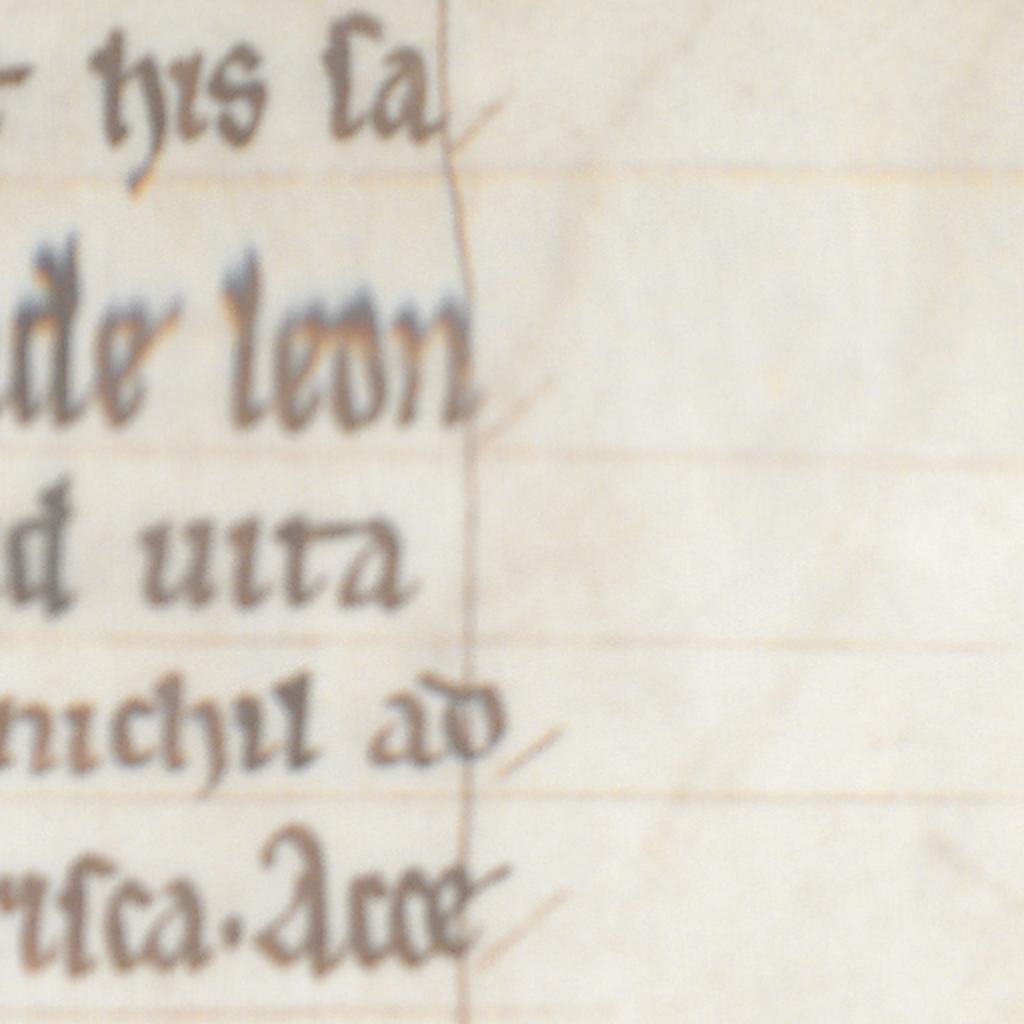 his sa
de leon
d uita
nichil ad
risca. Acce